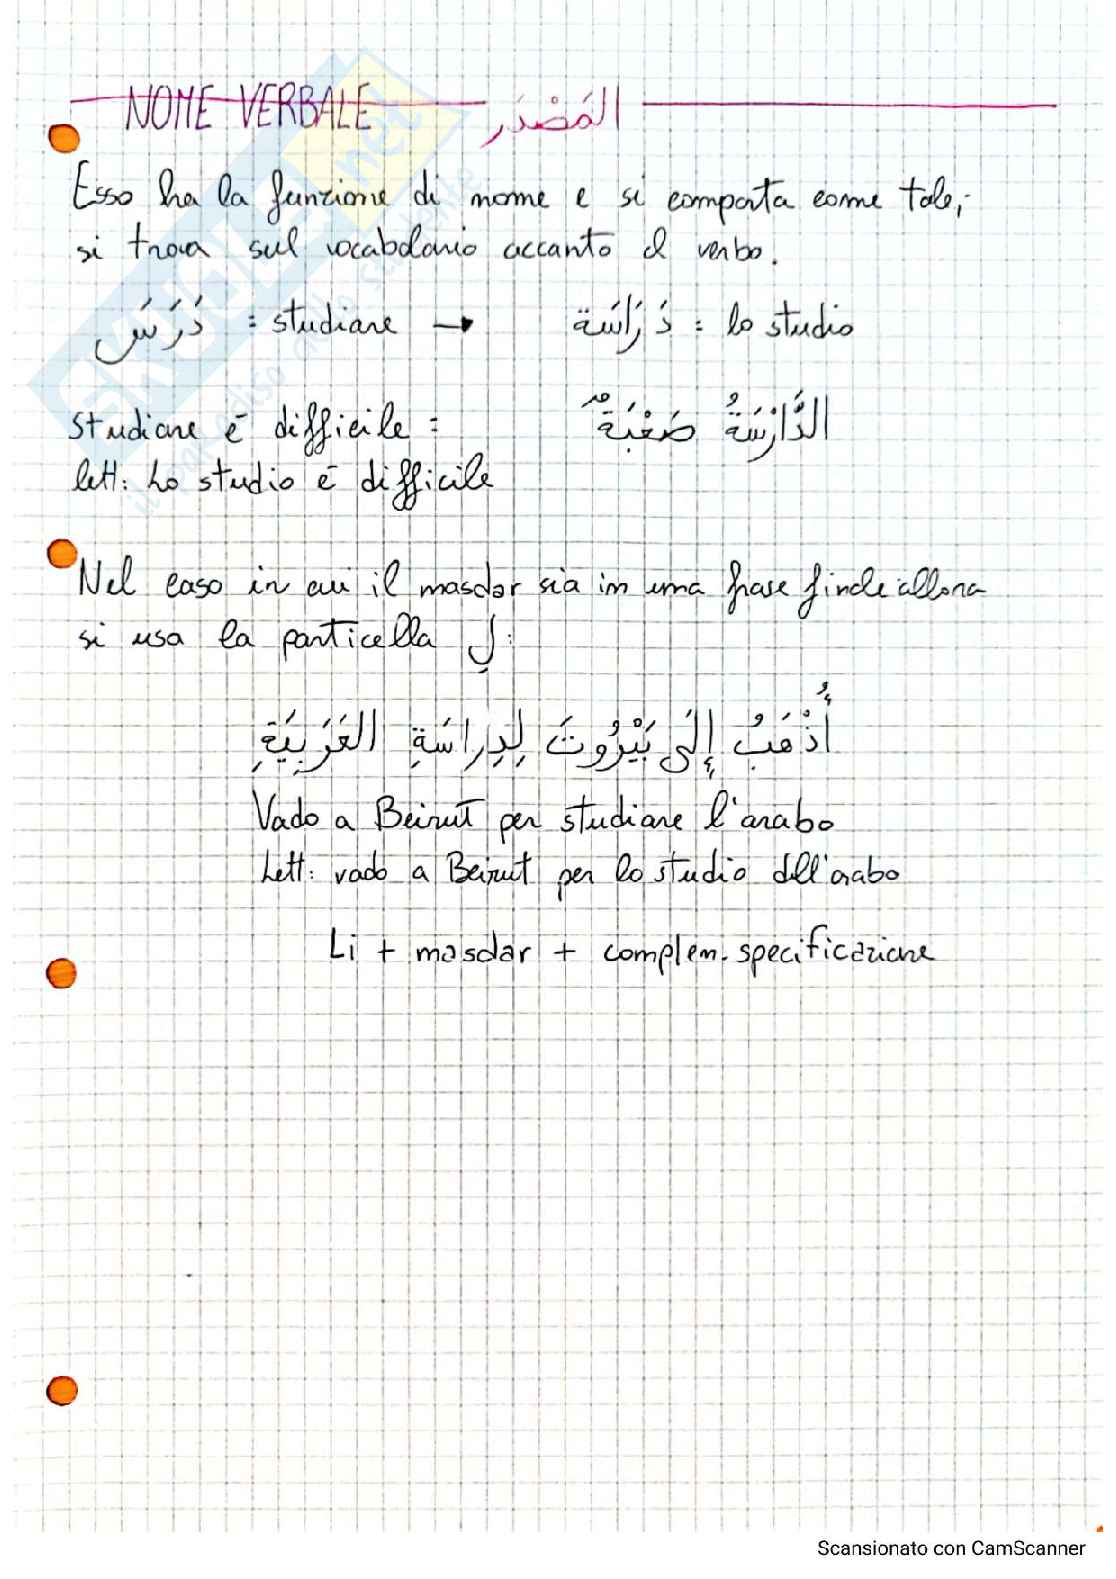 NOME VERBALE المَصْدَر
Esso ha la funzione di nome e si comporta come tale,
si trova sul vocabolario accanto al verbo.
دَرَسَ : studiare → دَرَاسَة : lo studio
Studiare è difficile : الدَّارْسَةُ صَعْبَةٌ
lett: Lo studio è difficile
Nel caso in cui il masdar sia in una frase finale allora
si usa la particella لِ :
أَذْهَبُ إِلَى بَيْرُوتَ لِدِراسَةِ العَرَبِيَةِ
Vado a Beirut per studiare l'arabo
Lett: vado a Beirut per lo studio dell'arabo
Li + masdar + complem. specificazione
SKUOLA.net
il paradiso dello studente
Scansionato con CamScanner